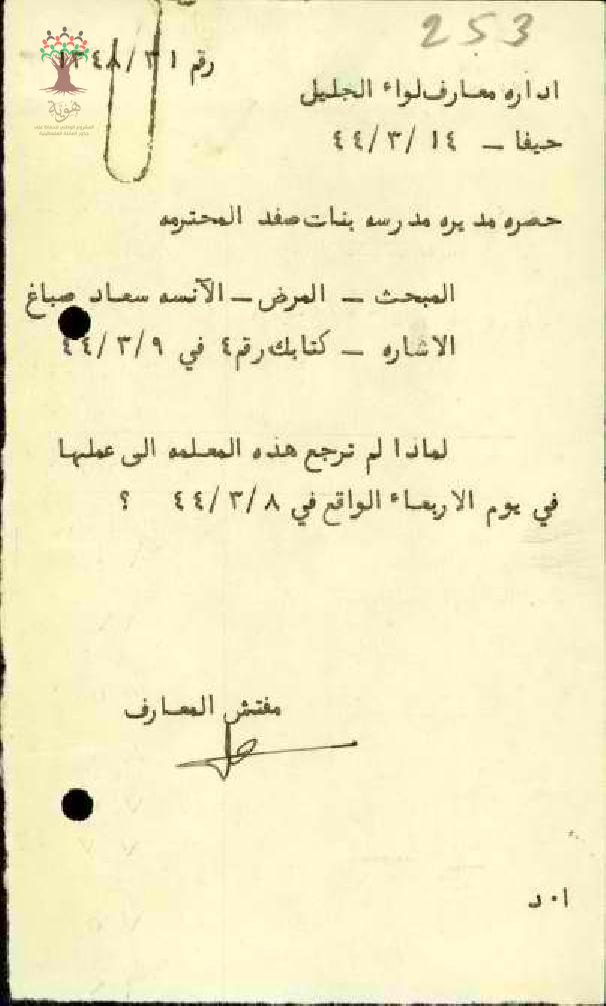 253
رقم ١٣٤٨/٣١
اداره معارف لواء الجليل
حيفا – ٤٤/٣/١٤
حضره مديره مدرسه بنات صفد المحترمه
المبحث – المرض – الآنسه سعاد صباغ
الاشاره – كتابك رقم ٤ في ٤٤/٣/٩
لماذا لم ترجع هذه المعلمه الى عملها
في يوم الاربعاء الواقع في ٤٤/٣/٨ ؟
مفتش المعارف
ا٠د
هوية